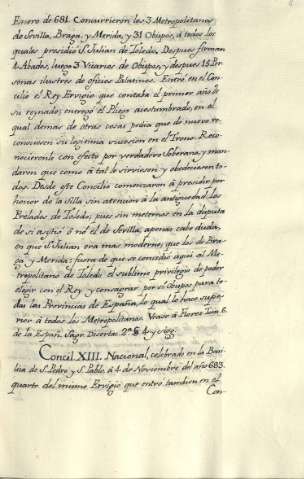 Enero de 681. Concurrieron los 3 Metropolitanos
de Sevilla, Braga, y Merida, y 31 Obispos, á todos los
quales presidió S. Julian de Toledo. Despues firman
4 Abades, luego 3 Vicarios de Obispos, y despues 15 Per-
sonas ilustres de oficios Palatinos. Entró en el Con-
cilio el Rey Ervigio que contaba el primer año de
su reynado; entregó el Pliego acostumbrado, en el
qual demas de otras cosas pedia que de nuevo re-
conociesen su legitima succesion en el Trono. Reco-
nocieronle con efecto por verdadero Soberano, y man-
daron que como á tal le sirviesen y obedeciesen to-
dos. Desde este Concilio comenzaron á presidir por
honor de la Silla sin atencion á la antiguedad los
Prelados de Toledo; pues sin meternos en la disputa
de si asistió ó no el de Sevilla, apenas cabe duda,
en que S. Julian era mas moderno, que los de Bra-
ga y Merida: fuera de que se concedio aqui al Me-
tropolitano de Toledo el sublime privilegio de poder
elegir con el Rey y consagrar por sí Obispos para to-
das las Provincias de España, lo qual le hace supe-
rior á todos los Metropolitanos. Vease á Florez Tom. 6.
de la Españ. Sagr. Disertac.
Concil. XIII. Nacional, celebrado en la Basi-
lica de S. Pedro y S. Pablo, á 4 de Noviembre del año 683.
quarto del mismo Ervigio que entró tambien en el
Con-